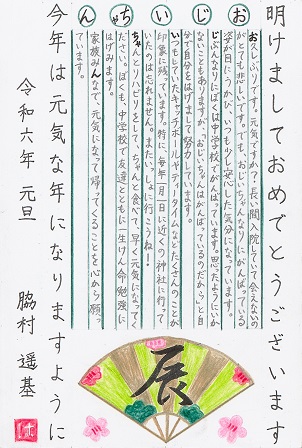 明けましておめでとうございます
おじいちゃん
お久しぶりです。元気ですか？長い間入院していて会えないの
がとても悲しいです。でも、おじいちゃんなりにがんばっている
姿が目にうかび、いつも少し安心した気分になっています。
じぶんなりにぼくは中学校でがんばっています。思ったようにいか
ないこともありますが、「おじいちゃんはがんばっているのだから」と自
分で自分をはげまして努力しています。
いつもしていたキャッチボールやティータイムなどたくさんのことが
印象に残っています。特に、毎年一月一日に近くの神社に行って
いたのは忘れません。またいっしょに行こうね！
ちゃんとリハビリをして、ちゃんと食べて、早く元気になってく
ださい。ぼくも、中学校で友達とともに一生けん命勉強に
はげみます。
家族みんなで、元気になって帰ってくることを心から願っ
ています。
辰
令和六年 元旦
脇村 遥基
今年は元気な年になりますように